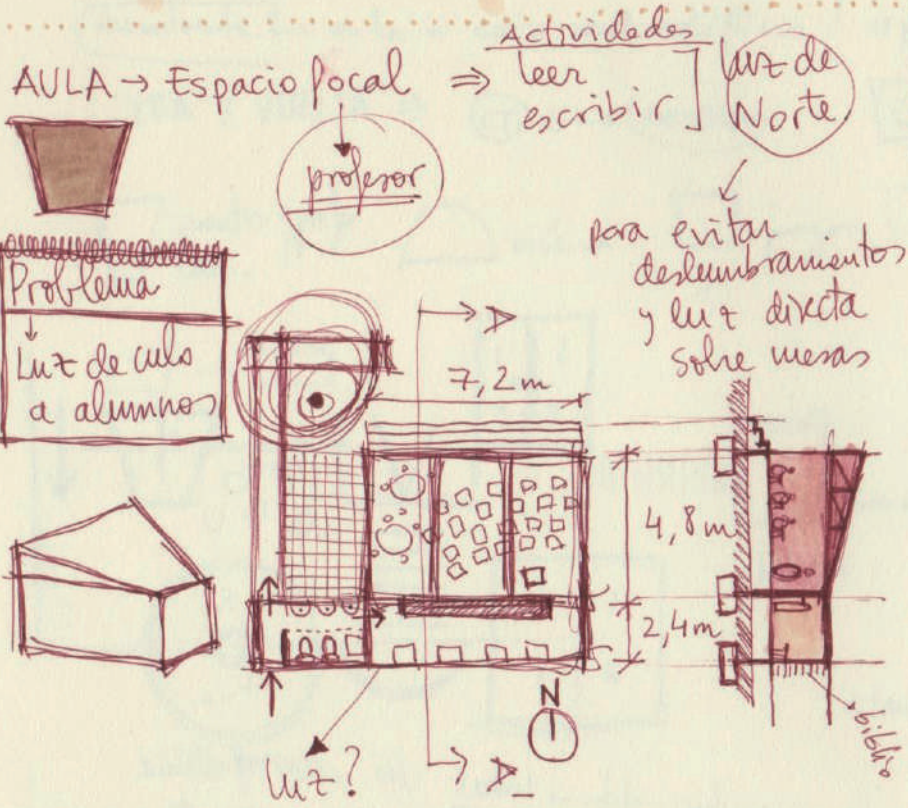 Actividades
AULA → Espacio focal ⇒ leer
escribir ] luz de
Norte.
profesor
para evitar
deslumbramientos
y luz directa
sobre mesas
Problema
↓
Luz de culo
a alumnos
A
7,2 m
4,8 m
2,4 m
N
biblio
luz?
A